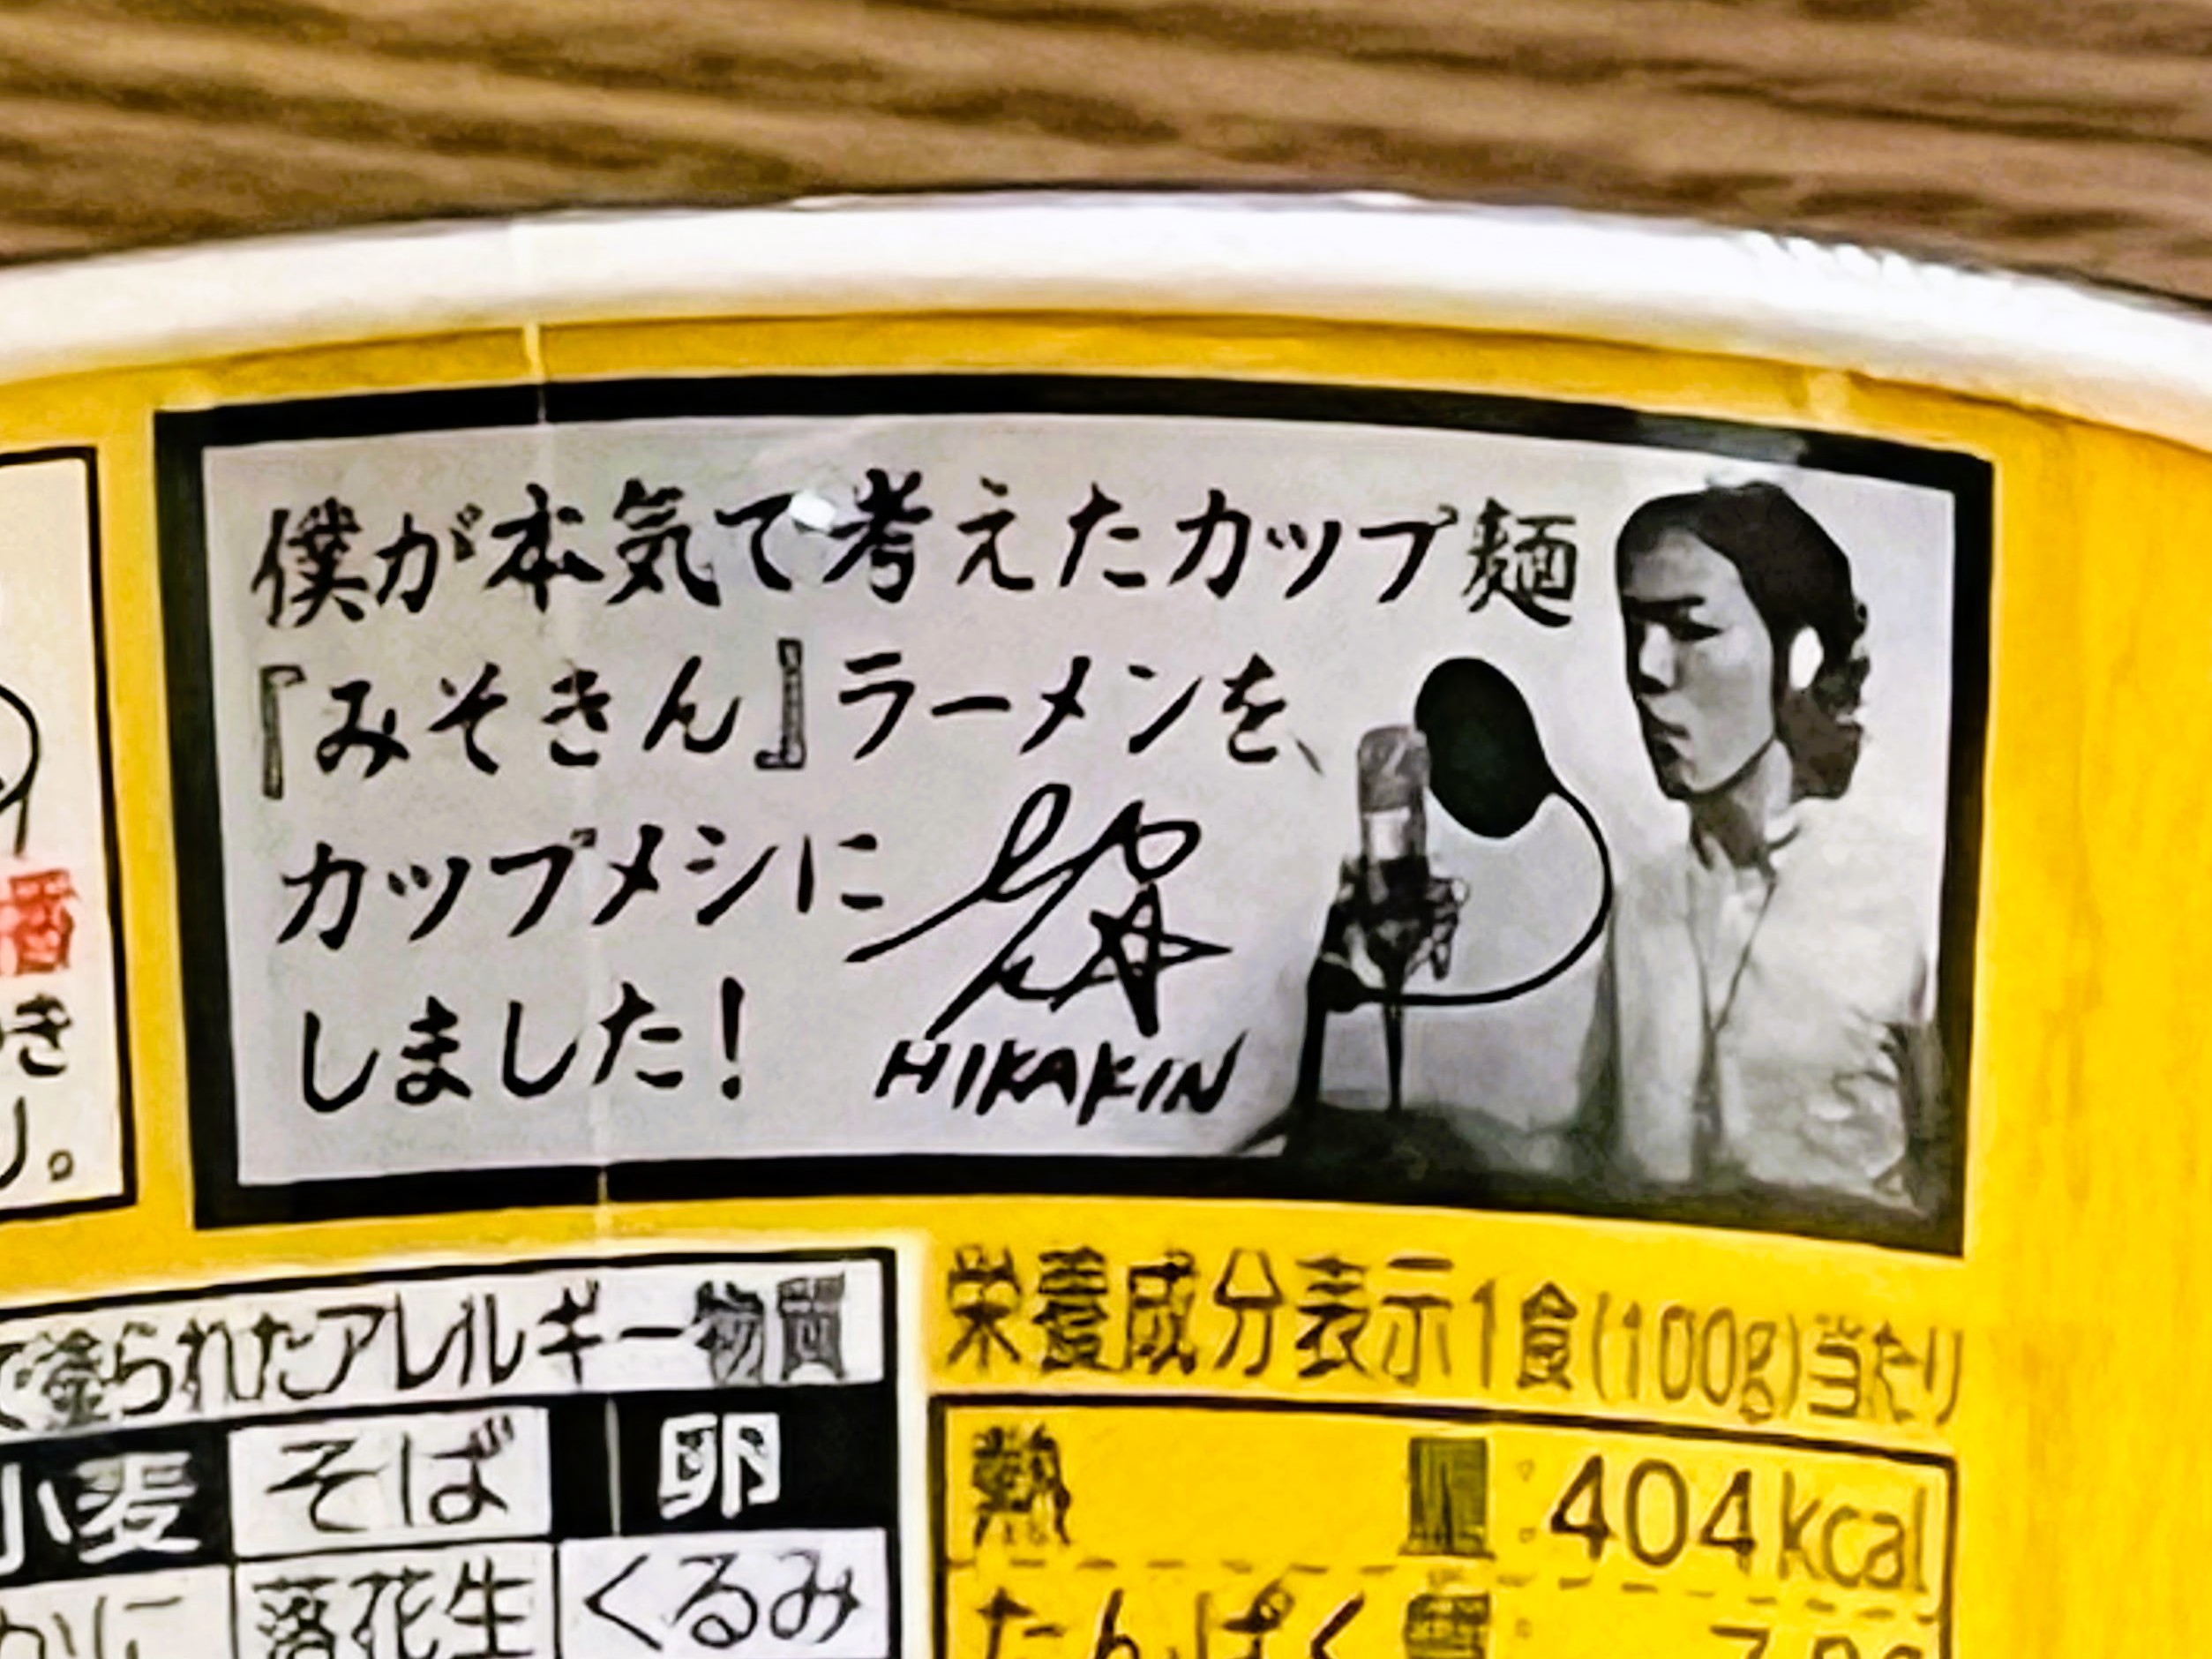 僕が本気で考えたカップ麺
『みそきん』ラーメンを、
カップメシに
しました！
HIKAKIN
き
り。
で塗られたアレルギー物質
小麦 そば 卵
かに 落花生 くるみ
栄養成分表示1食(100g)当たり
熱量：404kcal
たんぱく質：